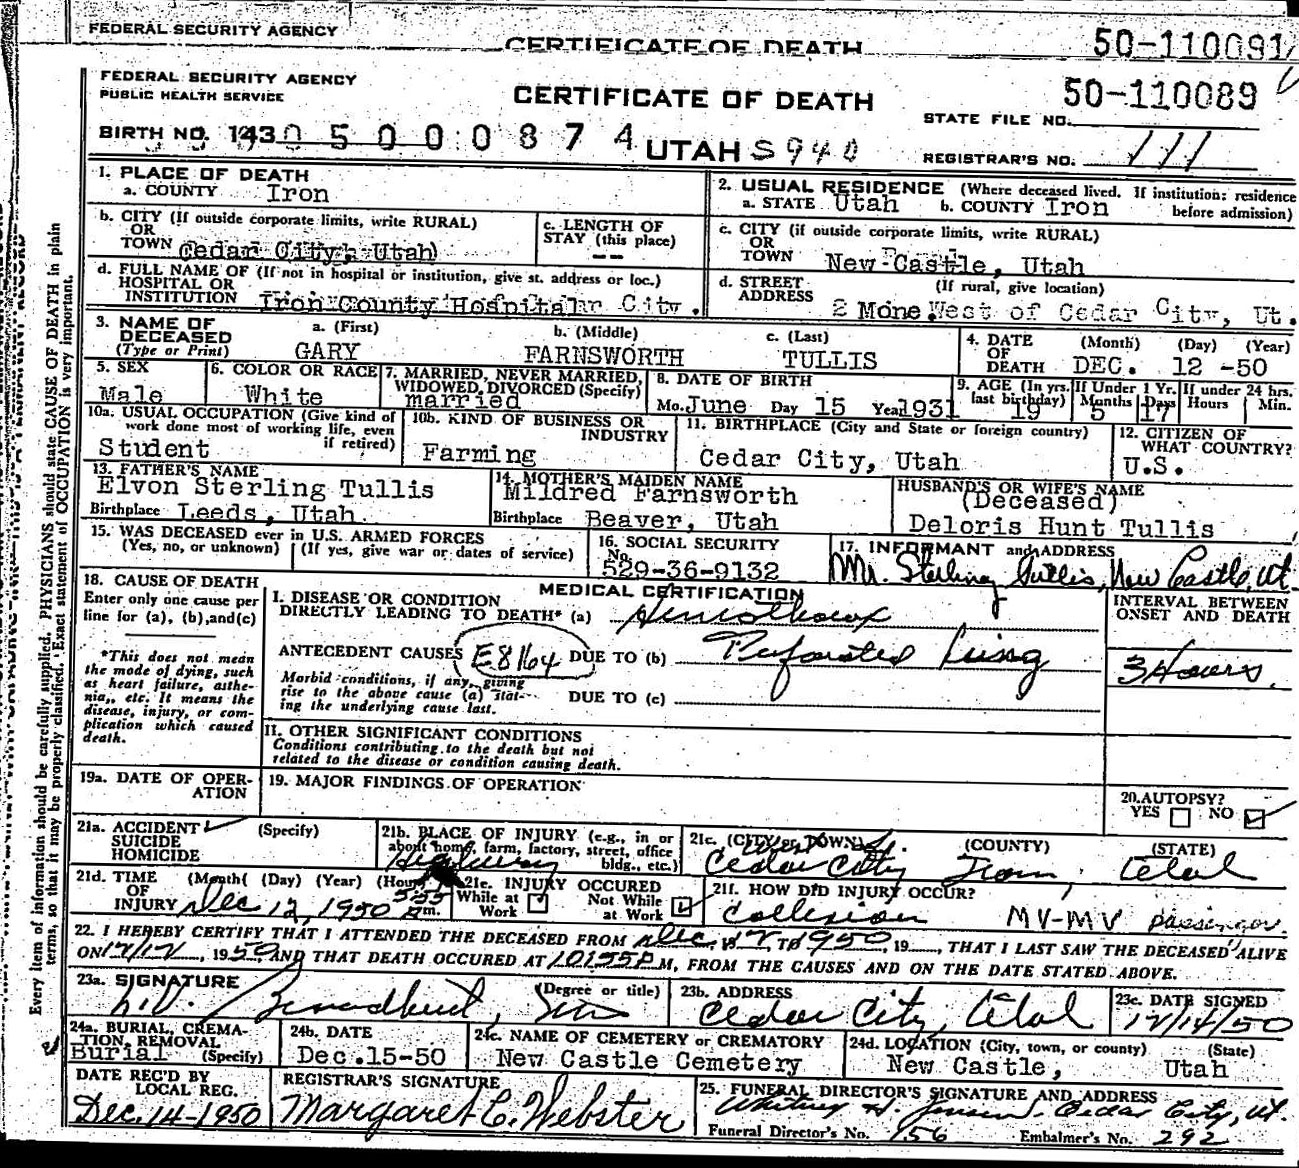 FEDERAL SECURITY AGENCY
CERTIFICATE OF DEATH
50-110091
FEDERAL SECURITY AGENCY
PUBLIC HEALTH SERVICE
CERTIFICATE OF DEATH
50-110089
STATE FILE NO.
BIRTH NO. 143 0 5 0 0 0 8 7 4
UTAH S940
REGISTRAR'S NO. 111
1. PLACE OF DEATH
a. COUNTY Iron
2. USUAL RESIDENCE (Where deceased lived. If institution: residence before admission)
a. STATE Utah b. COUNTY Iron
b. CITY (If outside corporate limits, write RURAL)
OR
TOWN Cedar City, Utah
c. LENGTH OF
STAY (this place)
--
c. CITY (if outside corporate limits, write RURAL)
OR
TOWN New Castle, Utah
d. FULL NAME OF (If not in hospital or institution, give st. address or loc.)
HOSPITAL OR
INSTITUTION Iron County Hospital City.
d. STREET (If rural, give location)
ADDRESS 2 West of Cedar City, Ut.
3. NAME OF DECEASED
(Type or Print)
a. (First) b. (Middle) c. (Last)
GARY FARNSWORTH TULLIS
4. DATE OF DEATH (Month) (Day) (Year)
DEC. 12 -50
5. SEX
Male
6. COLOR OR RACE
White
7. MARRIED, NEVER MARRIED,
WIDOWED, DIVORCED (Specify)
married
8. DATE OF BIRTH
Mo. June Day 15 Year 1931
9. AGE (In yrs. last birthday) 19
If Under 1 Yr. Months 5 Days 17
If under 24 hrs. Hours Min.
10a. USUAL OCCUPATION (Give kind of
work done most of working life, even
if retired)
Student
10b. KIND OF BUSINESS OR
INDUSTRY
Farming
11. BIRTHPLACE (City and State or foreign country)
Cedar City, Utah
12. CITIZEN OF
WHAT COUNTRY?
U.S.
13. FATHER'S NAME
Elvon Sterling Tullis
Birthplace Leeds, Utah
14. MOTHER'S MAIDEN NAME
Mildred Farnsworth
Birthplace Beaver, Utah
HUSBAND'S OR WIFE'S NAME
(Deceased)
Deloris Hunt Tullis
15. WAS DECEASED ever in U.S. ARMED FORCES
(Yes, no, or unknown) (If yes, give war or dates of service)
16. SOCIAL SECURITY
No.
529-36-9132
17. INFORMANT and ADDRESS
Mr. Sterling Tullis, New Castle, Ut.
18. CAUSE OF DEATH
Enter only one cause per
line for (a), (b), and (c)
*This does not mean
the mode of dying, such
as heart failure, asthe-
nia, etc. It means the
disease, injury, or com-
plication which caused
death.
MEDICAL CERTIFICATION
I. DISEASE OR CONDITION
DIRECTLY LEADING TO DEATH* (a) Hemothorax
ANTECEDENT CAUSES E8164 DUE TO (b) Perforated Lung
Morbid conditions, if any, giving
rise to the above cause (a) stat-
ing the underlying cause last.
DUE TO (c)
INTERVAL BETWEEN
ONSET AND DEATH
3 Hours.
II. OTHER SIGNIFICANT CONDITIONS
Conditions contributing to the death but not
related to the disease or condition causing death.
19a. DATE OF OPER-
ATION
19. MAJOR FINDINGS OF OPERATION
20. AUTOPSY?
YES NO
21a. ACCIDENT (Specify)
SUICIDE
HOMICIDE
21b. PLACE OF INJURY (e.g., in or
about home, farm, factory, street, office
bldg., etc.)
Highway
21c. (CITY or TOWN) (COUNTY) (STATE)
West
Cedar City Iron, Utah
21d. TIME (Month) (Day) (Year) (Hour)
OF
INJURY Dec 12, 1950 m.
21e. INJURY OCCURED
While at Work
Not While at Work
21f. HOW DID INJURY OCCUR?
Collision MV-MV passenger.
22. I HEREBY CERTIFY THAT I ATTENDED THE DECEASED FROM Dec. 12 TO 1950, 19__, THAT I LAST SAW THE DECEASED ALIVE
ON 12/12, 1950 AND THAT DEATH OCCURED AT 10:55 P M, FROM THE CAUSES AND ON THE DATE STATED ABOVE.
23a. SIGNATURE (Degree or title)
Broadbent
23b. ADDRESS
Cedar City, Utah
23c. DATE SIGNED
12/14/50
24a. BURIAL, CREMA-
TION, REMOVAL
Burial (Specify)
24b. DATE
Dec. 15-50
24c. NAME OF CEMETERY or CREMATORY
New Castle Cemetery
24d. LOCATION (City, town, or county) (State)
New Castle, Utah
DATE REC'D BY
LOCAL REG.
Dec. 14-1950
REGISTRAR'S SIGNATURE
Margaret C. Webster
25. FUNERAL DIRECTOR'S SIGNATURE AND ADDRESS
Whitney H. Jensen. Cedar City, Ut.
Funeral Director's No. 156 Embalmer's No. 292
Every item of information should be carefully supplied. PHYSICIANS should state CAUSE OF DEATH in plain
terms, so that it may be properly classified. Exact statement of OCCUPATION is very important.